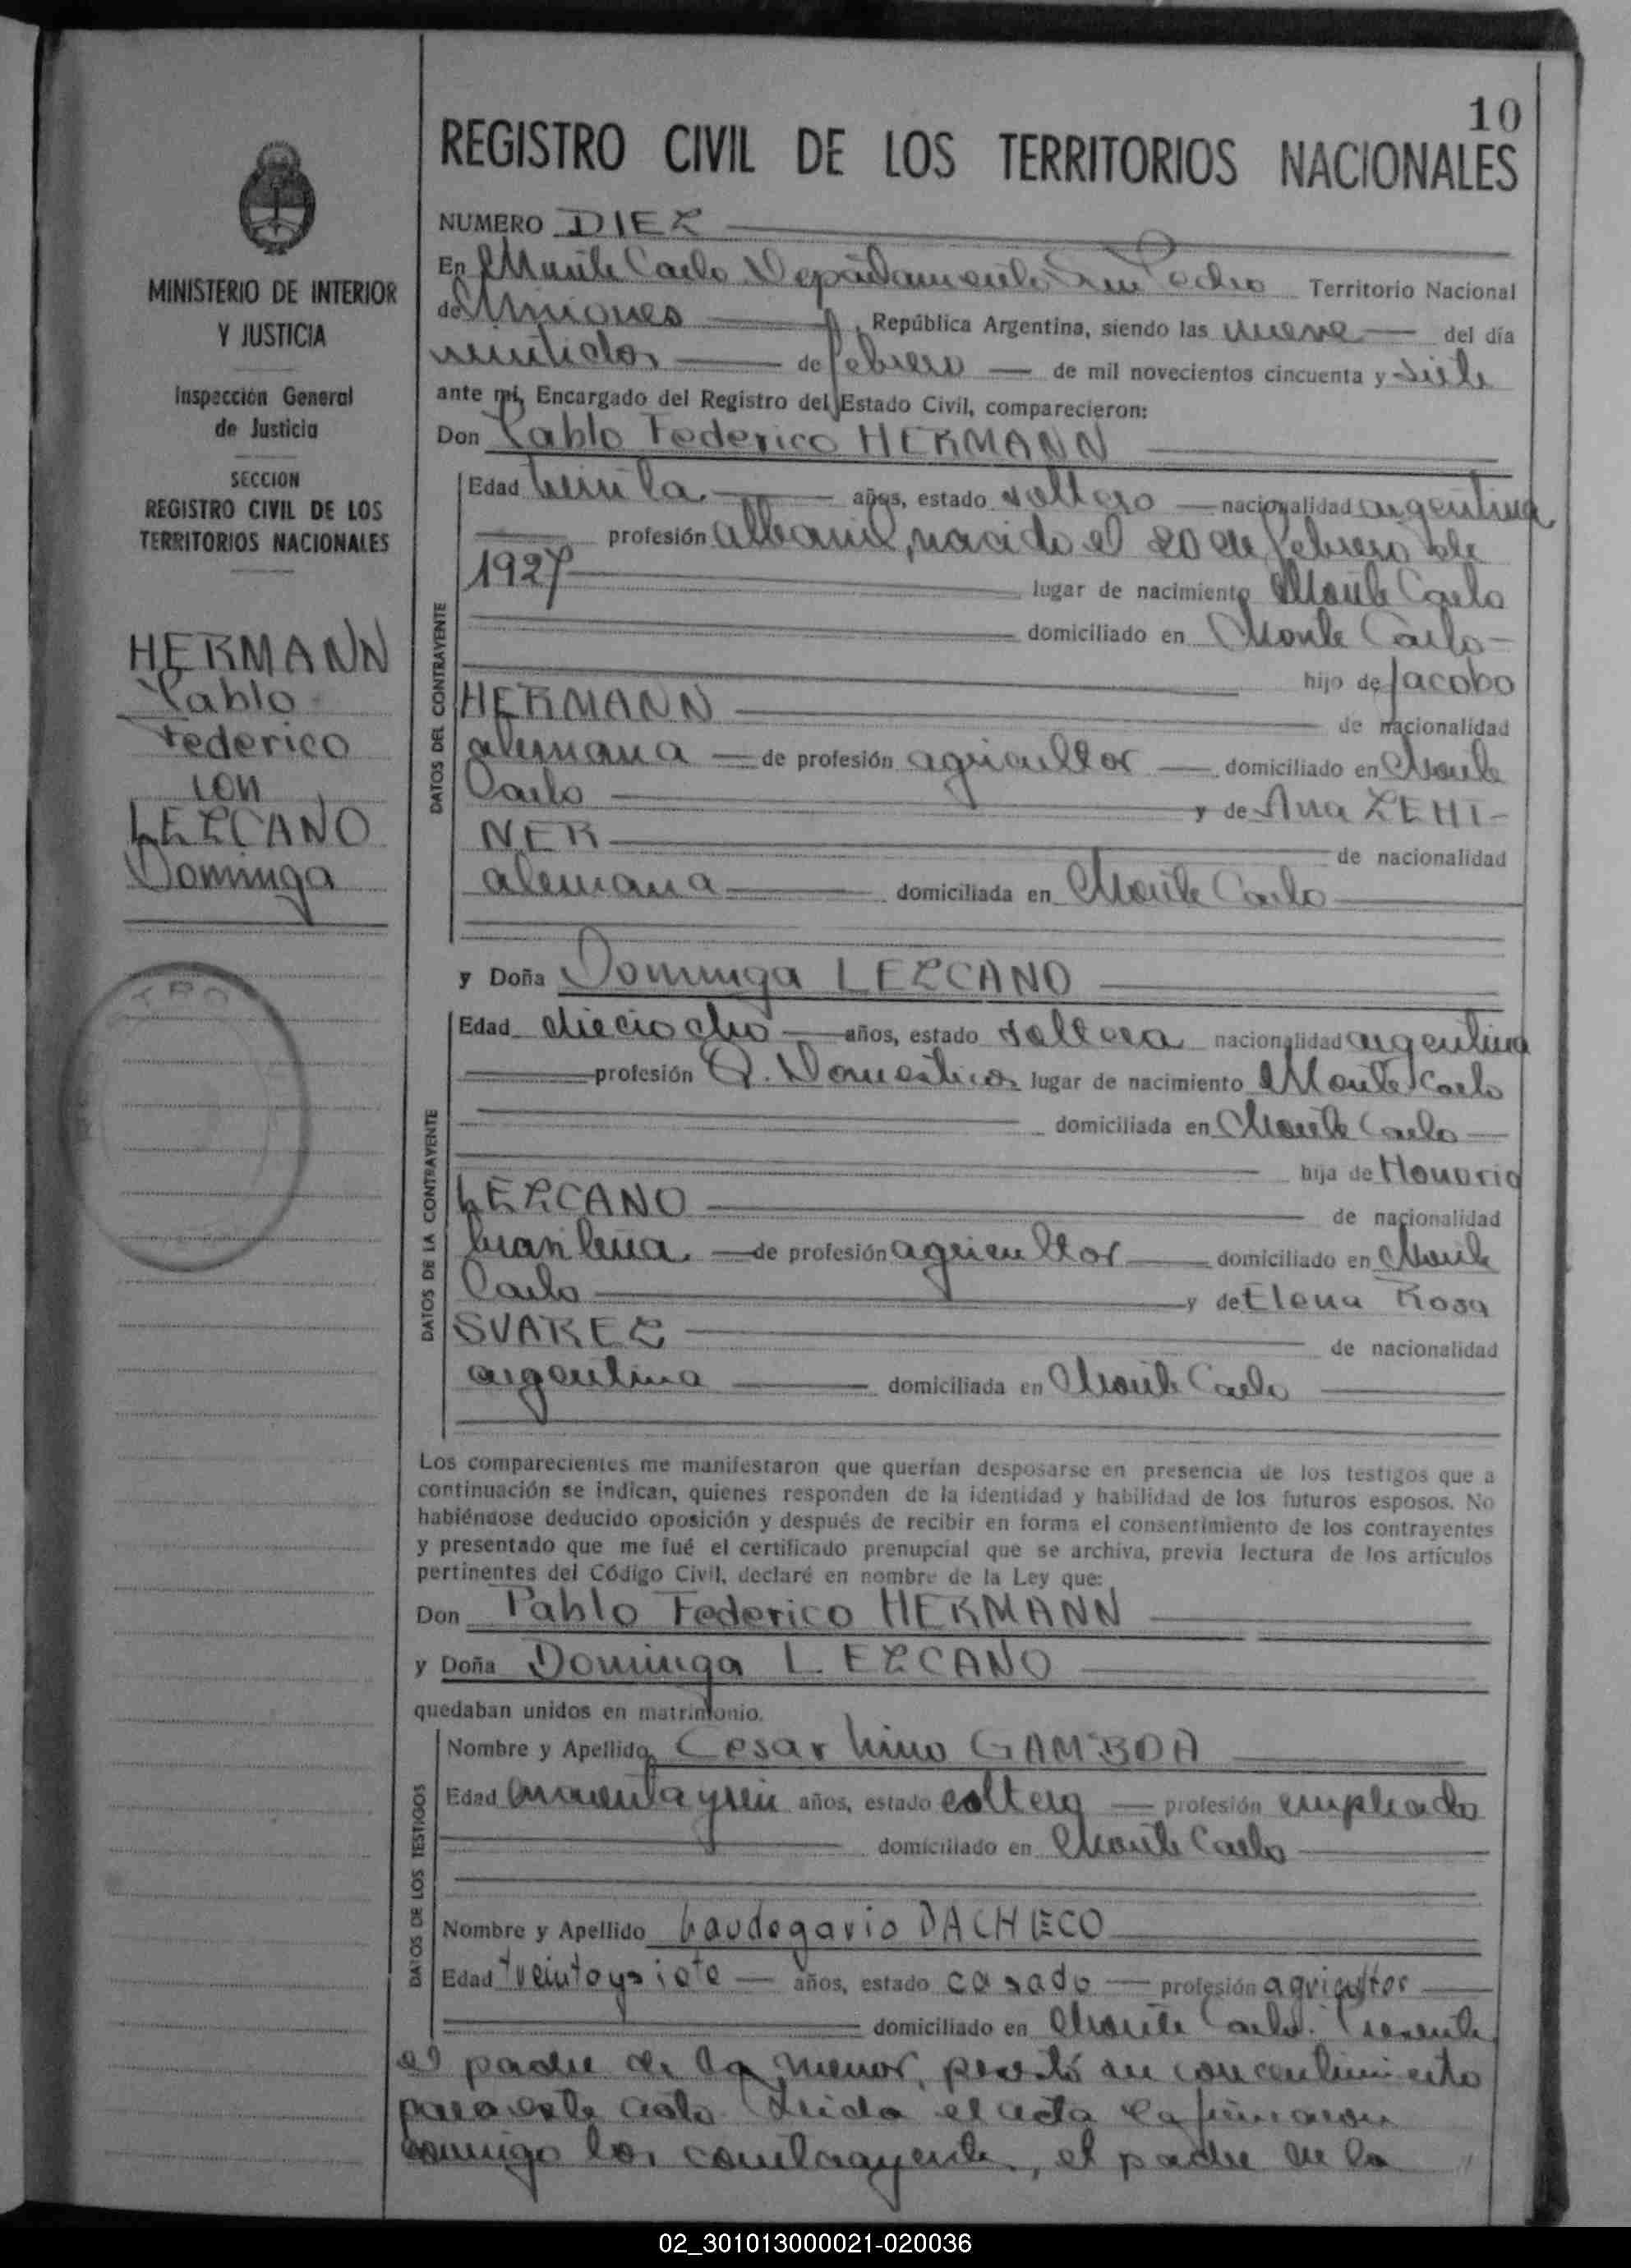 10
REGISTRO CIVIL DE LOS TERRITORIOS NACIONALES
MINISTERIO DE INTERIOR
Y JUSTICIA
Inspección General
de Justicia
SECCION
REGISTRO CIVIL DE LOS
TERRITORIOS NACIONALES
HERMANN
Pablo
Federico
con
LEZCANO
Dominga
NUMERO DIEZ
En Monte Carlo Departamento San Pedro Territorio Nacional
de Misiones, República Argentina, siendo las nueve del día
veintidos de febrero de mil novecientos cincuenta y siete
ante mí, Encargado del Registro del Estado Civil, comparecieron:
Don Pablo Federico HERMANN
DATOS DEL CONTRAYENTE
Edad treinta años, estado soltero nacionalidad argentina
profesión albanil, nacido el 20 de febrero de
1927 lugar de nacimiento Monte Carlo
domiciliado en Monte Carlo
hijo de Jacobo
HERMANN de nacionalidad
alemana de profesión agricultor domiciliado en Monte
Carlo y de Ana ZEHT-
NER de nacionalidad
alemana domiciliada en Monte Carlo
y Doña Dominga LEZCANO
DATOS DE LA CONTRAYENTE
Edad dieciocho años, estado soltera nacionalidad argentina
profesión Q. Domesticos lugar de nacimiento Monte Carlo
domiciliada en Monte Carlo
hija de Honorio
LEZCANO de nacionalidad
brasilena de profesión agricultor domiciliado en Monte
Carlo y de Elena Rosa
SUAREZ de nacionalidad
argentina domiciliada en Monte Carlo
Los comparecientes me manifestaron que querían desposarse en presencia de los testigos que a
continuación se indican, quienes responden de la identidad y habilidad de los futuros esposos. No
habiéndose deducido oposición y después de recibir en forma el consentimiento de los contrayentes
y presentado que me fué el certificado prenupcial que se archiva, previa lectura de los artículos
pertinentes del Código Civil, declaré en nombre de la Ley que:
Don Pablo Federico HERMANN
y Doña Dominga LEZCANO
quedaban unidos en matrimonio.
DATOS DE LOS TESTIGOS
Nombre y Apellido Cesar Lino GAMBOA
Edad años, estado soltero profesión empleado
domiciliado en Monte Carlo
Nombre y Apellido Laudegario PACHECO
Edad treintaysiete años, estado casado profesión agricultor
domiciliado en Monte Carlo. Presente
el padre de la menor, prestó su concentimiento
para este acto. Leida el acta la firmaron
conmigo los contrayentes, el padre de la
02_301013000021-020036